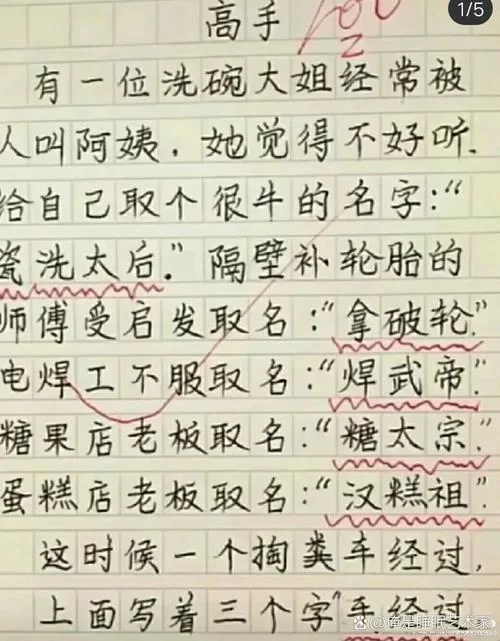 1/5
高手
100
2
有一位洗碗大姐经常被
人叫阿姨，她觉得不好听.
给自己取个很牛的名字:“
瓷洗太后.”隔壁补轮胎的
师傅受启发取名:“拿破轮”
电焊工不服取名:“焊武帝”
糖果店老板取名:“糖太宗”
蛋糕店老板取名:“汉糕祖”
这时候一个掏粪车经过,
上面写着三个字“车经过
@俺是睡眠艺术家